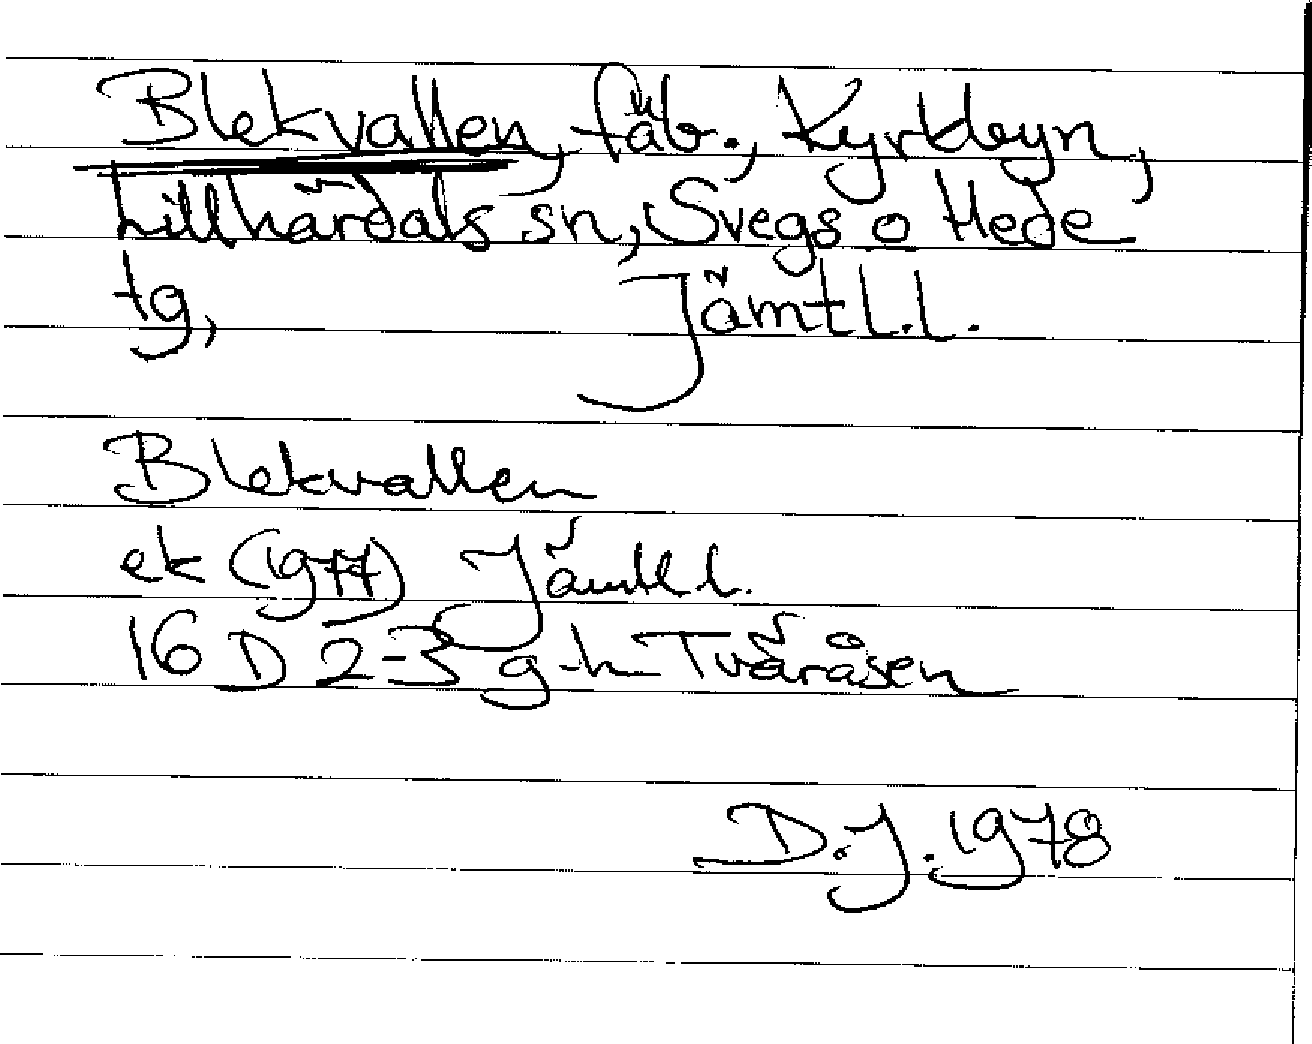 Blekvallen, fäb., Kyrkbyn,
Lillhärdals sn, Svegs o Hede
tg, Jämtl.l.
Blekvallen
ek (1977) Jämtl l.
16 D 2-3 g-h Tvåråsen
D.J. 1978